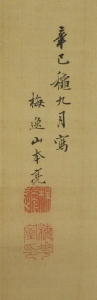 辛巳穐九月寫
梅逸山本亮